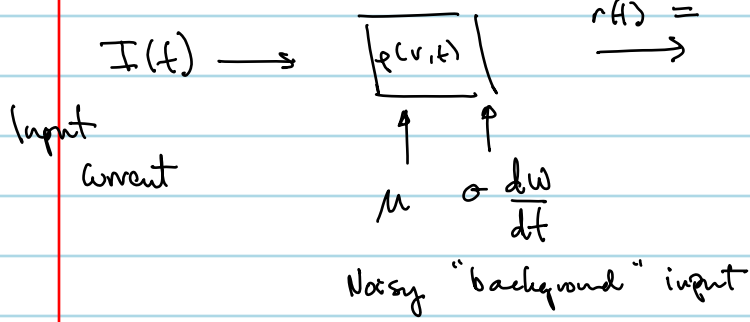 r(t) =
I(t) → ρ(v,t) →
Input
current
μ σ dw/dt
Noisy "background" input